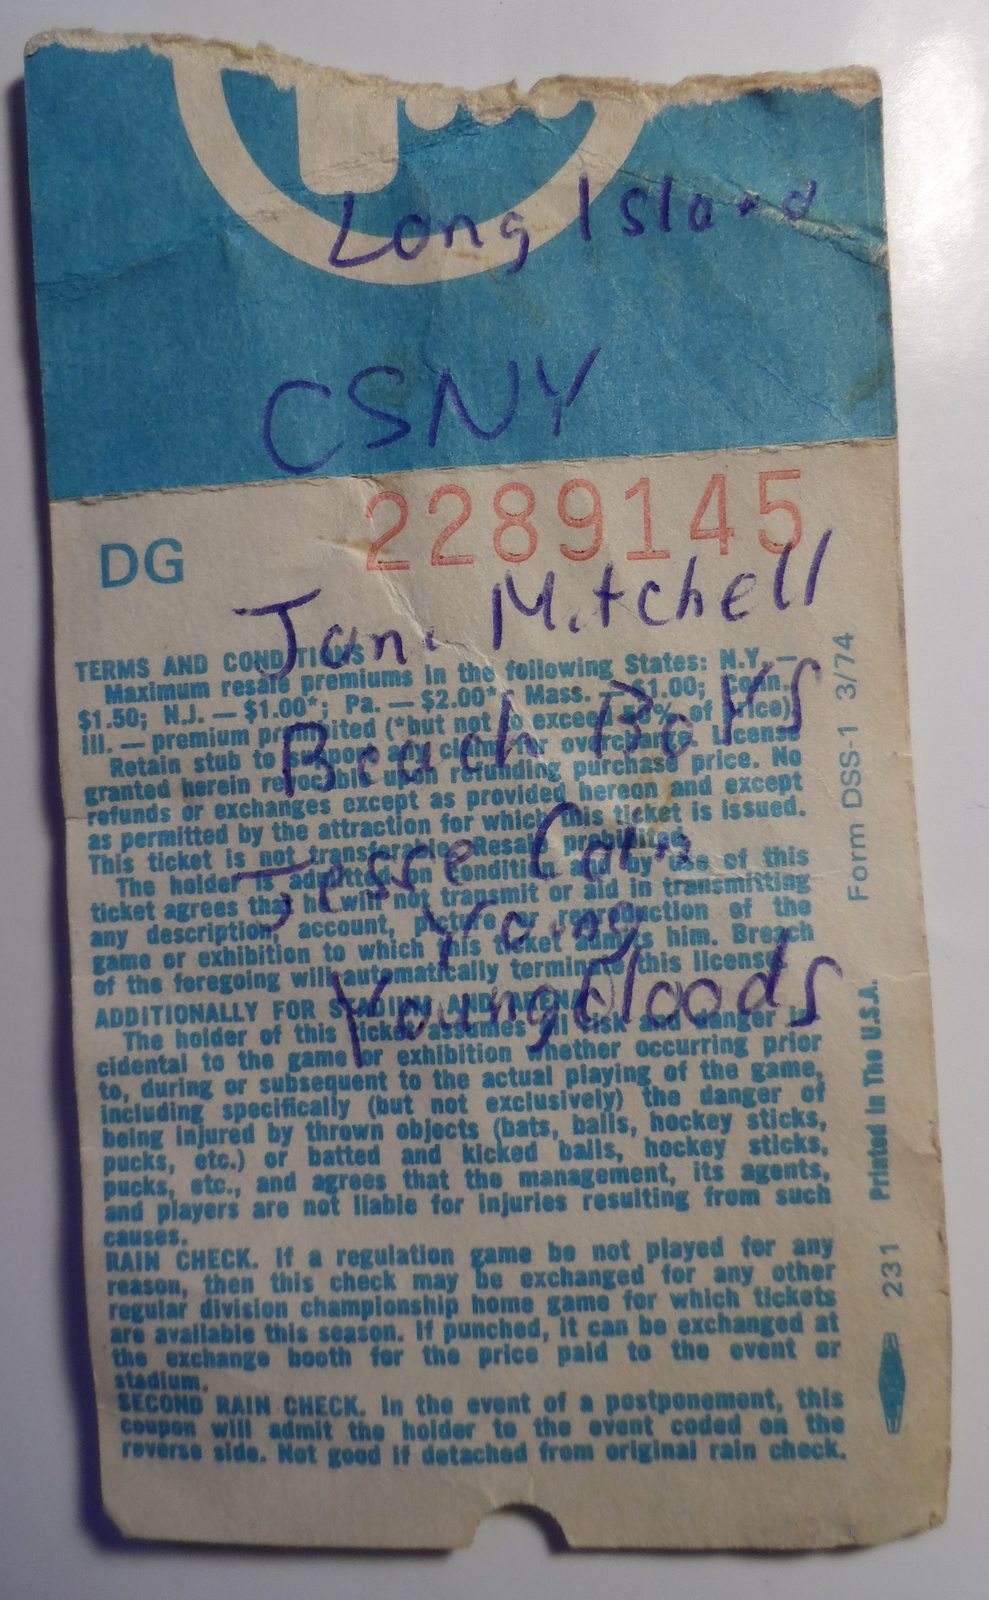 Long Island
CSNY
2289145
DG
Joni Mitchell
Beach Boys
Jesse Colin
Young
Youngbloods
TERMS AND CONDITIONS
Maximum resale premiums in the following States: N.Y. —
$1.50; N.J. — $1.00*; Pa. — $2.00*; Mass. — $1.00; Conn.,
Ill. — premium prohibited (*but not to exceed 50% of price).
Retain stub to support any claim for overcharge. License
granted herein revocable upon refunding purchase price. No
refunds or exchanges except as provided hereon and except
as permitted by the attraction for which this ticket is issued.
This ticket is not transferable. Resale prohibited.
The holder is admitted on condition and by use of this
ticket agrees that he will not transmit or aid in transmitting
any description, account, picture or reproduction of the
game or exhibition to which this ticket admits him. Breach
of the foregoing will automatically terminate this license.
ADDITIONALLY FOR STADIUM AND ARENA
The holder of this ticket assumes all risk and danger in-
cidental to the game or exhibition whether occurring prior
to, during or subsequent to the actual playing of the game,
including specifically (but not exclusively) the danger of
being injured by thrown objects (bats, balls, hockey sticks,
pucks, etc.) or batted and kicked balls, hockey sticks,
pucks, etc., and agrees that the management, its agents,
and players are not liable for injuries resulting from such
causes.
RAIN CHECK. If a regulation game be not played for any
reason, then this check may be exchanged for any other
regular division championship home game for which tickets
are available this season. If punched, it can be exchanged at
the exchange booth for the price paid to the event or
stadium.
SECOND RAIN CHECK. In the event of a postponement, this
coupon will admit the holder to the event coded on the
reverse side. Not good if detached from original rain check.
Form DSS-1 3/74
231 Printed in The U.S.A.